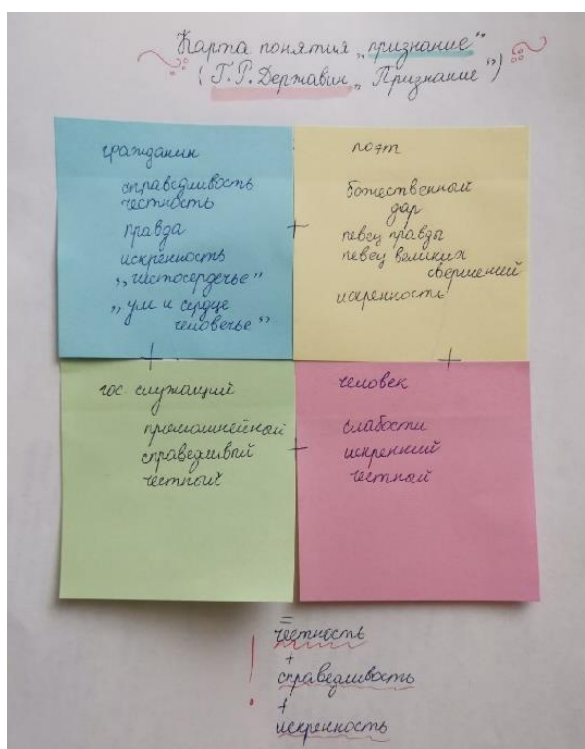 Карта понятия „признание“
(Г.Р.Державин „Признание“)
гражданин
справедливость
честность
правда
искренность
„чистосердечье“
„ум и сердце
человечье“
+
поэт
божественный
дар
певец правды
певец великих
свершений
искренность
+
+
гос. служащий
прямолинейный
справедливый
честный
+
человек
слабости
искренний
честный
=
! честность
+
справедливость
+
искренность